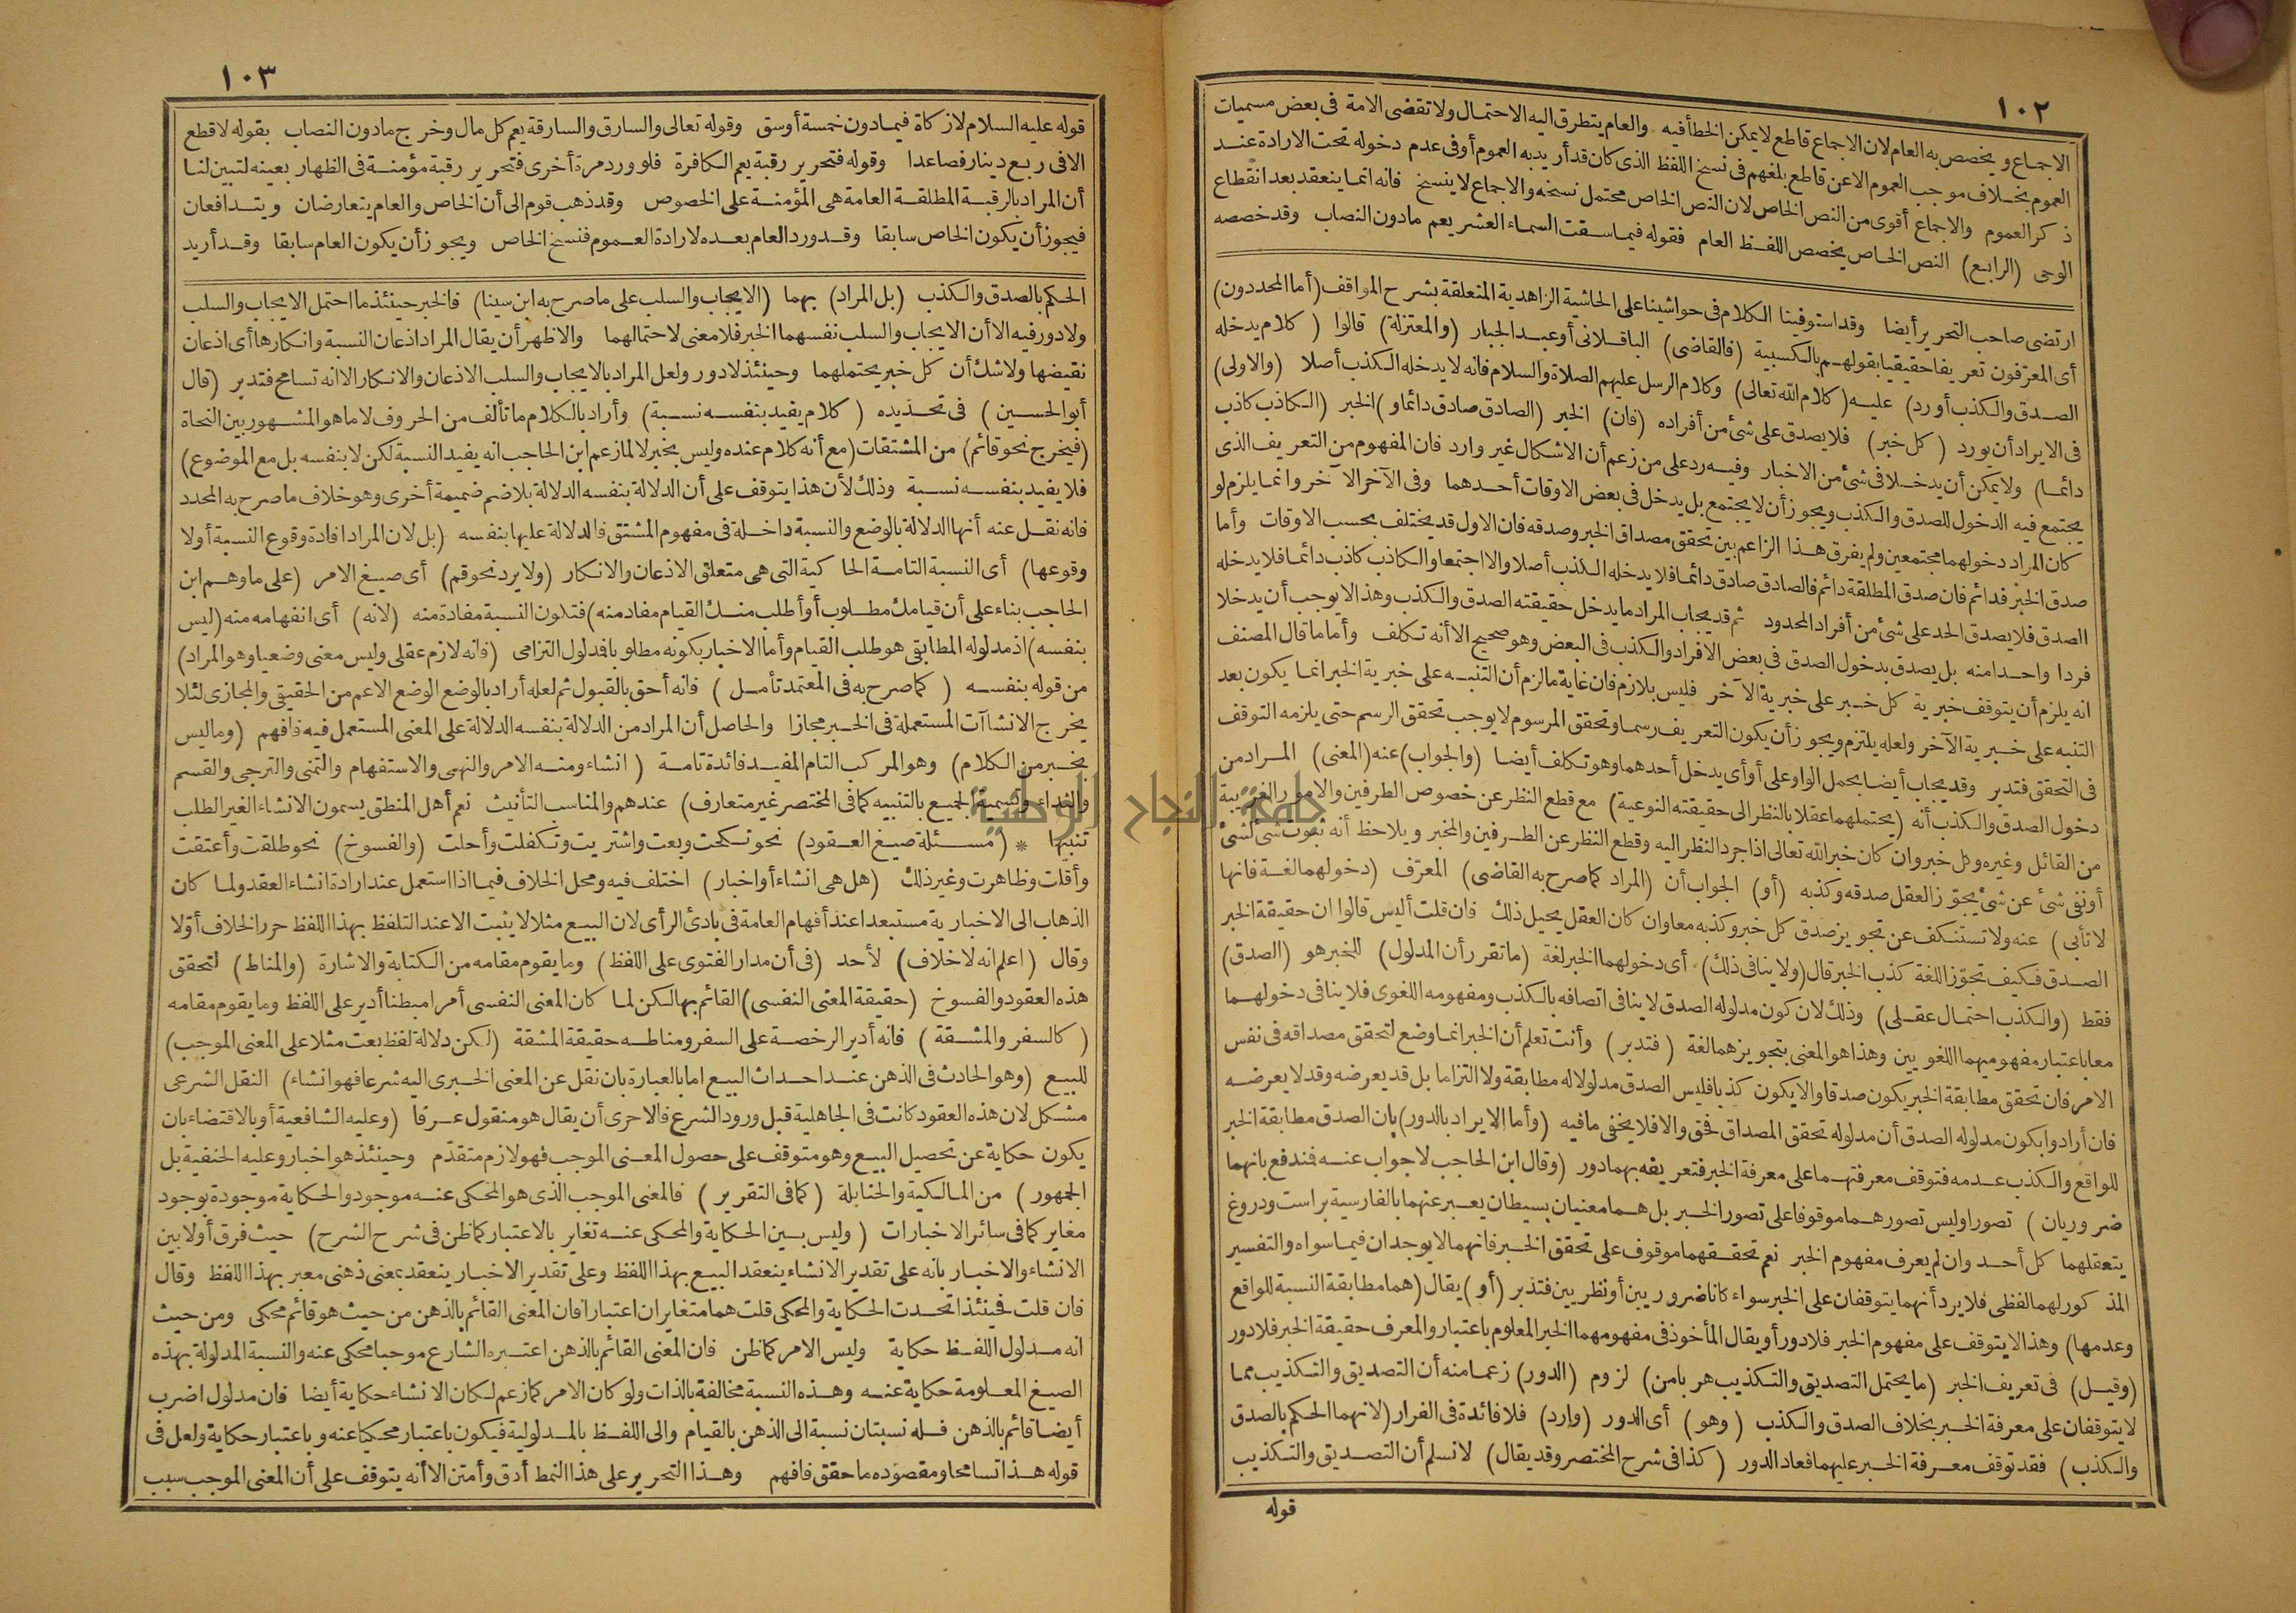 ١٠٢
الاجماع ويخصص به العام لان الاجماع قاطع لا يمكن الخطأ فيه والعام يتطرق اليه الاحتمال ولا تقضى الامة فى بعض مسميات
العموم بخلاف موجب العموم الا عن قاطع بلغهم فى نسخ اللفظ الذى كان قد أريد به العموم أو فى عدم دخوله تحت الارادة عند
ذكر العموم والاجماع أقوى من النص الخاص لان النص الخاص محتمل نسخه والاجماع لا ينسخ فانه انما ينعقد بعد انقطاع
الوحى (الرابع) النص الخاص يخصص اللفظ العام فقوله فيما سقت السماء العشر يعم ما دون النصاب وقد خصصه
ارتضى صاحب التحرير أيضا وقد استوفينا الكلام فى حواشينا على الحاشية الزاهدية المتعلقة بشرح المواقف (أما المحددون)
أى المعرّفون تعريفا حقيقيا بقولهم بالكسبية (فالقاضى) الباقلانى أو عبد الجبار (والمعتزلة) قالوا (كلام يدخله
الصدق والكذب أورد) عليه (كلام الله تعالى) وكلام الرسل عليهم الصلاة والسلام فانه لا يدخله الكذب أصلا (والاولى)
فى الايراد أن يورد (كل خبر) فلا يصدق على شئ من أفراده (فان) الخبر (الصادق صادق دائما و) الخبر (الكاذب كاذب
دائما) ولا يمكن أن يدخلا فى شئ من الاخبار وفيه رد على من زعم أن الاشكال غير وارد فان المفهوم من التعريف الذى
يجتمع فيه الدخول للصدق والكذب ويجوز أن لا يجتمع بل يدخل فى بعض الاوقات أحدهما وفى الآخر الآخر وانما يلزم لو
كان المراد دخولهما مجتمعين ولم يفرق هذا الزاعم بين تحقق مصداق الخبر وصدقه فان الاول قد يختلف بحسب الاوقات وأما
صدق الخبر فدائم فان صدق المطلقة دائم فالصادق صادق دائما فلا يدخله الكذب أصلا والا اجتمعا والكاذب كاذب دائما فلا يدخله
الصدق فلا يصدق الحد على شئ من أفراد المحدود ثم قد يجاب المراد ما يدخل حقيقته الصدق والكذب وهذا لا يوجب أن يدخلا
فردا واحدا منه بل يصدق بدخول الصدق فى بعض الافراد والكذب فى البعض وهو صحيح الا أنه تكلف وأما ما قال المصنف
انه يلزم أن يتوقف خبرية كل خبر على خبرية الآخر فليس بلازم فان غاية ما لزم أن التنبه على خبرية الخبر انما يكون بعد
التنبه على خبرية الآخر ولعله يلتزم ويجوز أن يكون التعريف رسما وتحقق المرسوم لا يوجب تحقق الرسم حتى يلزمه التوقف
فى التحقق فتدبر وقد يجاب أيضا بحمل الواو على أو أى يدخل أحدهما وهو تكلف أيضا (والجواب) عنه (المعنى) المراد من
دخول الصدق والكذب أنه (يحتملهما عقلا بالنظر الى حقيقته النوعية) مع قطع النظر عن خصوص الطرفين والامور الغريبة
من القائل وغيره وكل خبر وان كان خبر الله تعالى اذا جرد النظر اليه وقطع النظر عن الطرفين والمخبر ويلاحظ أنه ثبوت شئ لشئ
أو نفى شئ عن شئ يجوّز العقل صدقه وكذبه (أو) الجواب أن (المراد كما صرح به القاضى) المعرّف (دخولهما لغة فانها
لا تأبى) عنه ولا تستنكف عن تجويز صدق كل خبر وكذبه معا وان كان العقل يحيل ذلك فان قلت أليس قالوا ان حقيقة الخبر
الصدق فكيف تجوّز اللغة كذب الخبر قال (ولا ينافى ذلك) أى دخولهما الخبر لغة (ما تقرر أن المدلول) للخبر هو (الصدق)
فقط (والكذب احتمال عقلى) وذلك لان كون مدلوله الصدق لا ينافى اتصافه بالكذب ومفهومه اللغوى فلا ينافى دخولهما
معا باعتبار مفهوميهما اللغويين وهذا هو المعنى بتجويزهما لغة (فتدبر) وأنت تعلم أن الخبر انما وضع لتحقق مصداقه فى نفس
الامر فان تحقق مطابقة الخبر يكون صدقا والا يكون كذبا فليس الصدق مدلولا له مطابقة ولا التزاما بل قد يعرضه وقد لا يعرضه
فان أرادوا بكون مدلوله الصدق أن مدلوله تحقق المصداق فحق والا فلا يخفى ما فيه (وأما الايراد بالدور) بان الصدق مطابقة الخبر
للواقع والكذب عدمه فتوقف معرفتهما على معرفة الخبر فتعريفه بهما دور (وقال ابن الحاجب لا جواب عنه فندفع بانهما
ضروريان) تصورا وليس تصورهما موقوفا على تصور الخبر بل هما معنيان بسيطان يعبر عنهما بالفارسية براست ودروغ
يتعقلهما كل أحد وان لم يعرف مفهوم الخبر نعم تحققهما موقوف على تحقق الخبر فانهما لا يوجدان فيما سواه والتفسير
المذكور لهما لفظى فلا يرد أنهما يتوقفان على الخبر سواء كانا ضروريين أو نظريين فتدبر (أو) يقال (هما مطابقة النسبة للواقع
وعدمها) وهذا لا يتوقف على مفهوم الخبر فلا دور أو يقال المأخوذ فى مفهومهما الخبر المعلوم باعتبار والمعرف حقيقة الخبر فلا دور
(وقيل) فى تعريف الخبر (ما يحتمل التصديق والتكذيب هربا من) لزوم (الدور) زعما منه أن التصديق والتكذيب مما
لا يتوقفان على معرفة الخبر بخلاف الصدق والكذب (وهو) أى الدور (وارد) فلا فائدة فى الفرار (لانهما الحكم بالصدق
والكذب) فقد توقف معرفة الخبر عليهما فعاد الدور (كذا فى شرح المختصر وقد يقال) لا نسلم أن التصديق والتكذيب
قوله
١٠٣
قوله عليه السلام لا زكاة فيما دون خمسة أوسق وقوله تعالى والسارق والسارقة يعم كل مال وخرج ما دون النصاب بقوله لا قطع
الا فى ربع دينار فصاعدا وقوله فتحرير رقبة يعم الكافرة فلو ورد مرة أخرى فتحرير رقبة مؤمنة فى الظهار بعينه لتبين لنا
أن المراد بالرقبة المطلقة العامة هى المؤمنة على الخصوص وقد ذهب قوم الى أن الخاص والعام يتعارضان ويتدافعان
فيجوز أن يكون الخاص سابقا وقد ورد العام بعده لارادة العموم فنسخ الخاص ويجوز أن يكون العام سابقا وقد أريد
الحكم بالصدق والكذب (بل المراد) بهما (الايجاب والسلب على ما صرح به ابن سينا) فالخبر حينئذ ما احتمل الايجاب والسلب
ولا دور فيه الا أن الايجاب والسلب نفسهما الخبر فلا معنى لاحتمالهما والاظهر أن يقال المراد اذعان النسبة وانكارها أى اذعان
نقيضها ولا شك أن كل خبر يحتملهما وحينئذ لا دور ولعل المراد بالايجاب والسلب الاذعان والانكار الا انه تسامح فتدبر (قال
أبو الحسين) فى تحديده (كلام يفيد بنفسه نسبة) وأراد بالكلام ما تألف من الحروف لا ما هو المشهور بين النحاة
(فيخرج نحو قائم) من المشتقات (مع أنه كلام عنده وليس بخبر لا لما زعم ابن الحاجب انه يفيد النسبة لكن لا بنفسه بل مع الموضوع)
فلا يفيد بنفسه نسبة وذلك لأن هذا يتوقف على أن الدلالة بنفسه الدلالة بلا ضم ضميمة أخرى وهو خلاف ما صرح به المحدد
فانه نقل عنه أنها الدلالة بالوضع والنسبة داخلة فى مفهوم المشتق فالدلالة عليها بنفسه (بل لان المراد افادة وقوع النسبة أولا
وقوعها) أى النسبة التامة الحاكية التى هى متعلق الاذعان والانكار (ولا يرد نحو قم) أى صيغ الامر (على ما وهم ابن
الحاجب بناء على أن قيامك مطلوب أو أطلب منك القيام مفاد منه) فتكون النسبة مفادة منه (لانه) أى انفهامه منه (ليس
بنفسه) اذ مدلوله المطابقى هو طلب القيام وأما الاخبار بكونه مطلوبا فمدلول التزامى (فانه لازم عقلى وليس معنى وضعيا وهو المراد)
من قوله بنفسه (كما صرح به فى المعتمد تأمل) فانه أحق بالقبول ثم لعله أراد بالوضع الوضع الاعم من الحقيقى والمجازى لئلا
يخرج الانشاآت المستعملة فى الخبر مجازا والحاصل أن المراد من الدلالة بنفسه الدلالة على المعنى المستعمل فيه فافهم (وما ليس
بخبر من الكلام) وهو المركب التام المفيد فائدة تامة (انشاء ومنه الامر والنهى والاستفهام والتمنى والترجى والقسم
والنداء وتسمية الجميع بالتنبيه كما فى المختصر غير متعارف) عندهم والمناسب التأنيث نعم أهل المنطق يسمون الانشاء الغير الطلب
تنبيها * (مسئلة صيغ العقود) نحو نكحت وبعت واشتريت وتكفلت وأحلت (والفسوخ) نحو طلقت وأعتقت
وأقلت وظاهرت وغير ذلك (هل هى انشاء أو اخبار) اختلف فيه ومحل الخلاف فيما اذا استعمل عند ارادة انشاء العقد ولما كان
الذهاب الى الاخبارية مستبعدا عند أفهام العامة فى بادئ الرأى لان البيع مثلا لا يثبت الا عند التلفظ بهذا اللفظ حرر الخلاف أوّلا
وقال (اعلم انه لا خلاف) لأحد (فى أن مدار الفتوى على اللفظ) وما يقوم مقامه من الكتابة والاشارة (والمناط) لتحقق
هذه العقود والفسوخ (حقيقة المعنى النفسى) القائم بها لكن لما كان المعنى النفسى أمرا مبطنا أدير على اللفظ وما يقوم مقامه
(كالسفر والمشقة) فانه أدير الرخصة على السفر ومناطه حقيقة المشقة (لكن دلالة لفظ بعت مثلا على المعنى الموجب)
للبيع (وهو الحادث فى الذهن عند احداث البيع اما بالعبارة بان نقل عن المعنى الخبرى اليه شرعا فهو انشاء) النقل الشرعى
مشكل لان هذه العقود كانت فى الجاهلية قبل ورود الشرع فالاحرى أن يقال هو منقول عرفا (وعليه الشافعية أو بالاقتضاء بان
يكون حكاية عن تحصيل البيع وهو متوقف على حصول المعنى الموجب فهو لازم متقدّم وحينئذ هو اخبار وعليه الحنفية بل
الجمهور) من المالكية والحنابلة (كما فى التقرير) فالمعنى الموجب الذى هو المحكى عنه موجود والحكاية موجودة بوجود
مغاير كما فى سائر الاخبارات (وليس بين الحكاية والمحكى عنه تغاير بالاعتبار كما ظن فى شرح الشرح) حيث فرق أولا بين
الانشاء والاخبار بانه على تقدير الانشاء ينعقد البيع بهذا اللفظ وعلى تقدير الاخبار ينعقد بمعنى ذهنى معبر بهذا اللفظ وقال
فان قلت فحينئذ اتحدت الحكاية والمحكى قلت هما متغايران اعتبارا فان المعنى القائم بالذهن من حيث هو قائم محكى ومن حيث
انه مدلول اللفظ حكاية وليس الامر كما ظن فان المعنى القائم بالذهن اعتبره الشارع موجبا محكى عنه والنسبة المدلولة بهذه
الصيغ المعلومة حكاية عنه وهذه النسبة مخالفة بالذات ولو كان الامر كما زعم لكان الانشاء حكاية أيضا فان مدلول اضرب
أيضا قائم بالذهن فله نسبتان نسبة الى الذهن بالقيام والى اللفظ بالمدلولية فيكون باعتبار محكيا عنه وباعتبار حكاية ولعل فى
قوله هذا تسامحا ومقصوده ما حقق فافهم وهذا التحرير على هذا النمط أدق وأمتن الا أنه يتوقف على أن المعنى الموجب سبب
جامعة النجاح الوطنية